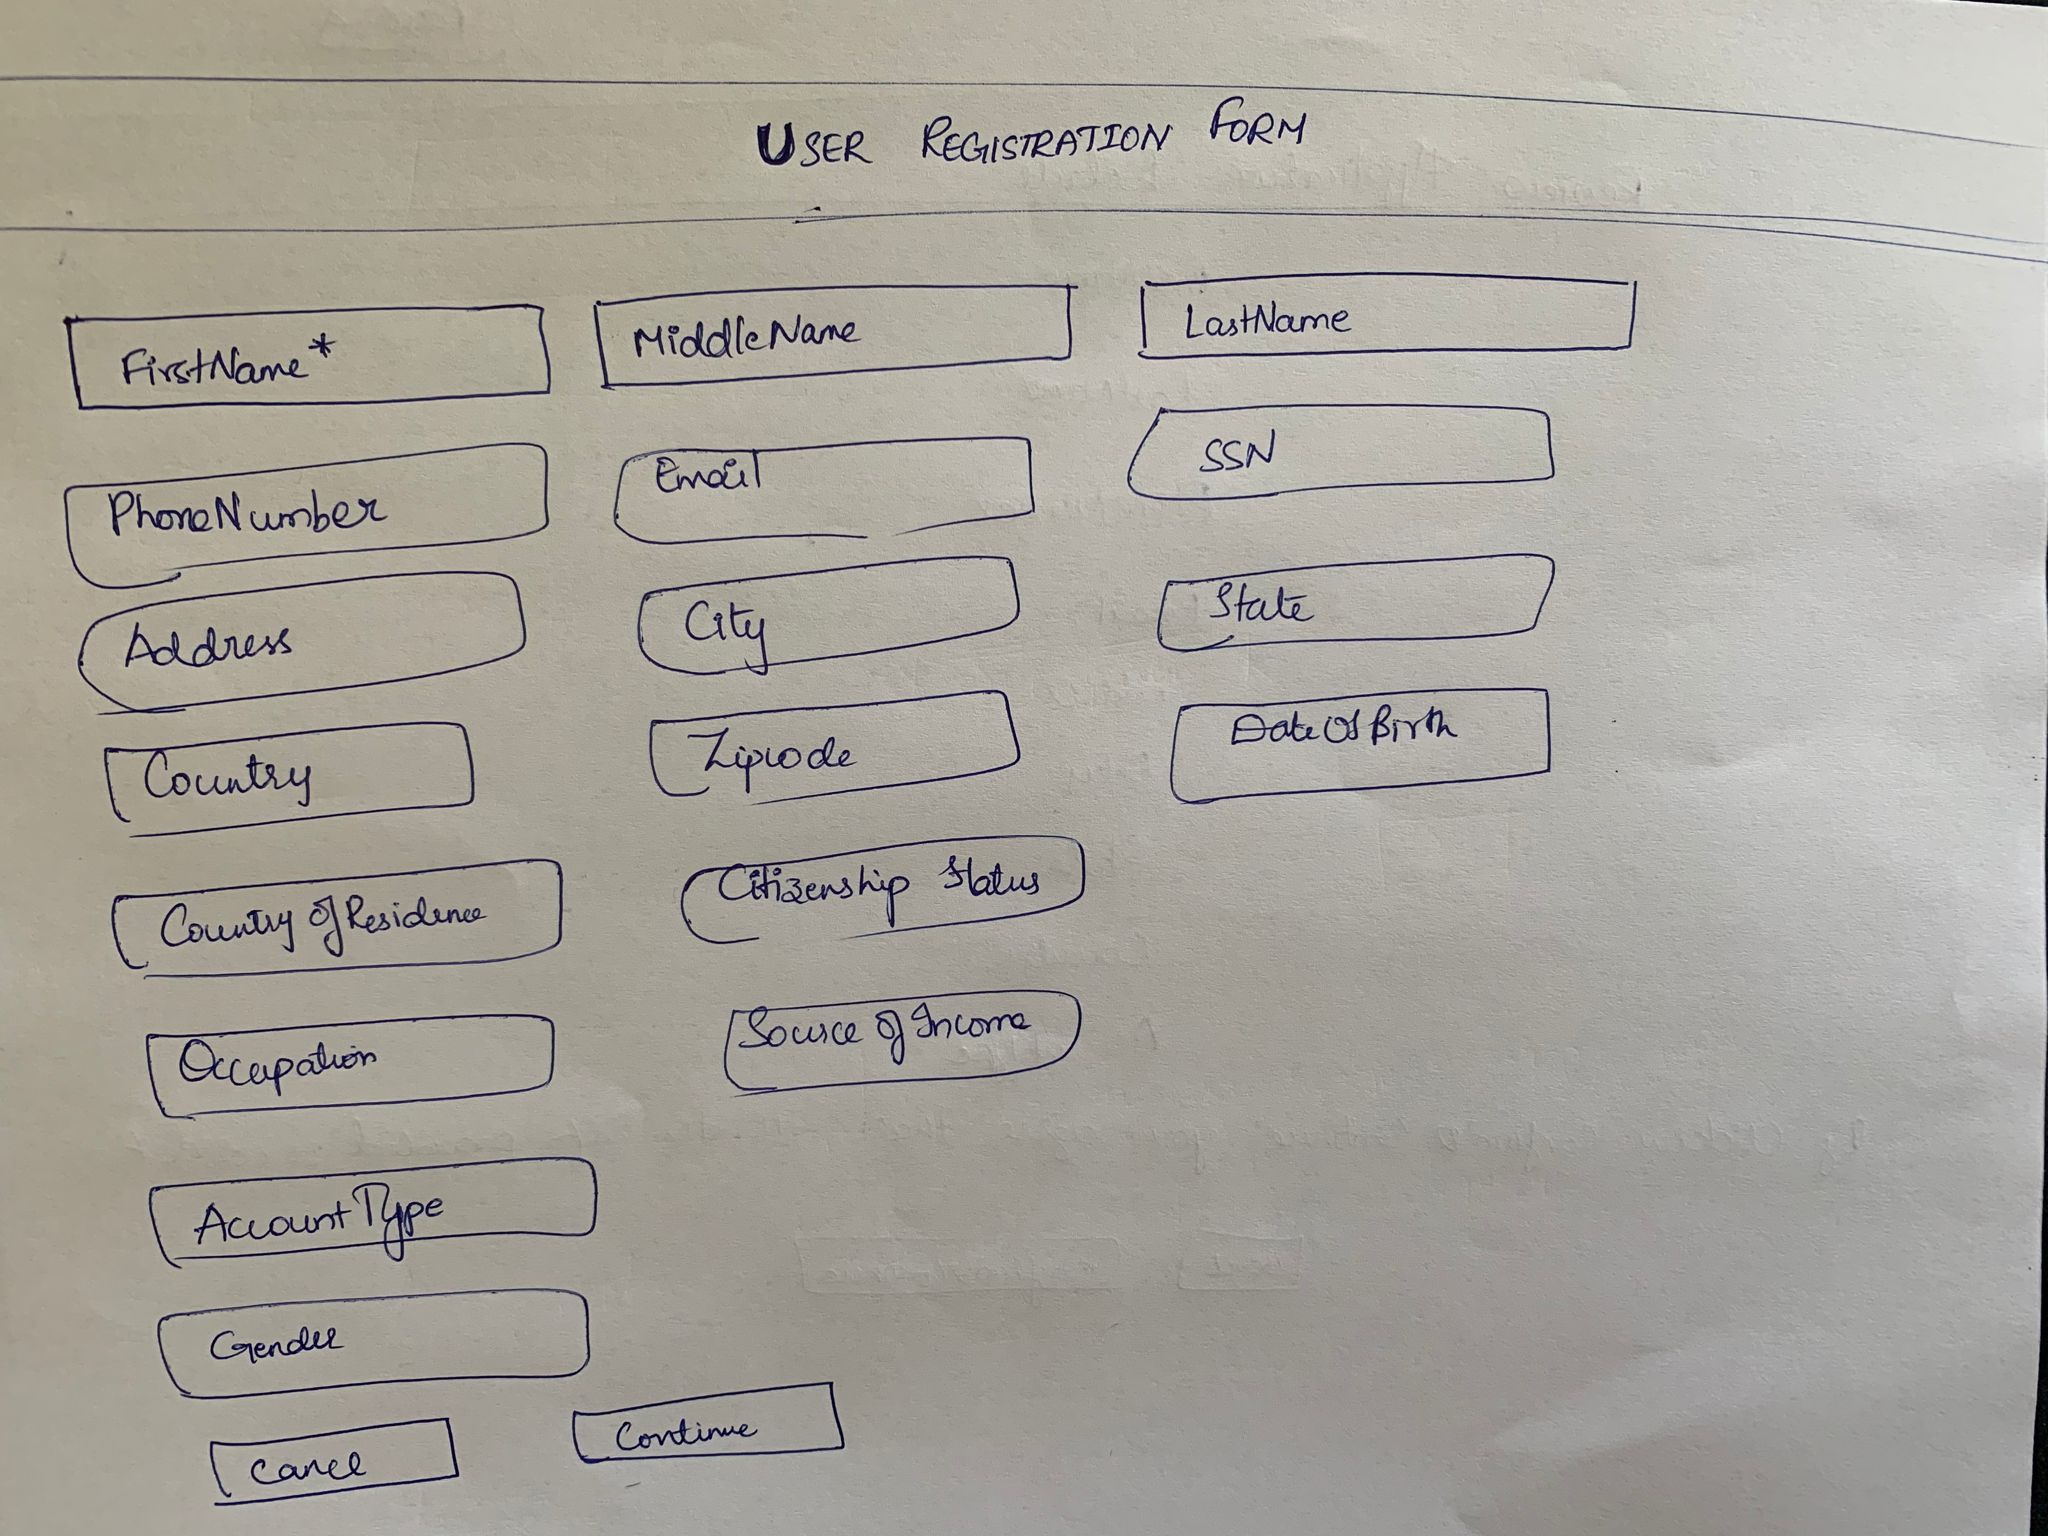 USER REGISTRATION FORM
FirstName* MiddleName LastName
PhoneNumber Email SSN
Address City State
Country Zipcode DateOfBirth
Country Of Residence Citizenship Status
Occupation Source of Income
AccountType
Gender
Cancel Continue